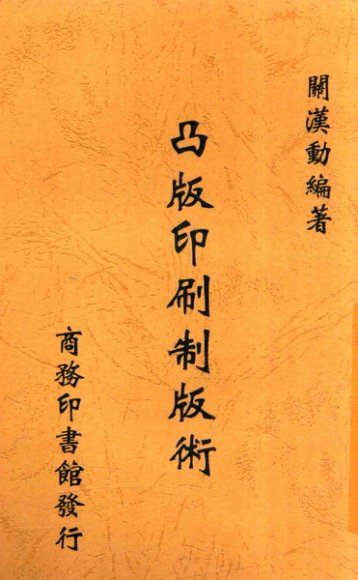 關漢動編著
凸版印刷制版術
商務印書館發行